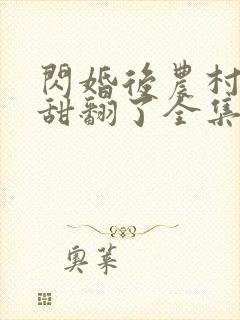 閃婚後農村
甜翻了全集
奧萊